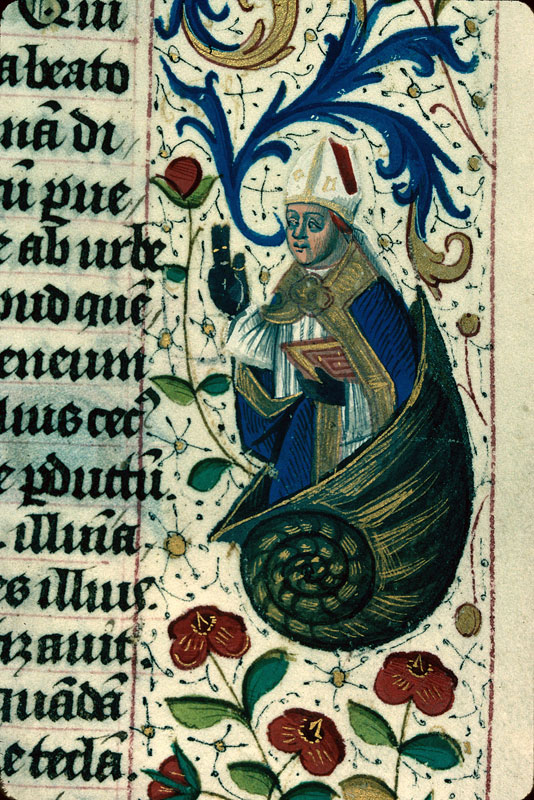 Qui
a beato
nā di
tū pue
e ab urbe
pud quē
eneum
lius cec⁹
e pductū.
illīa
es illius.
izauit.
quādā
e tecla.